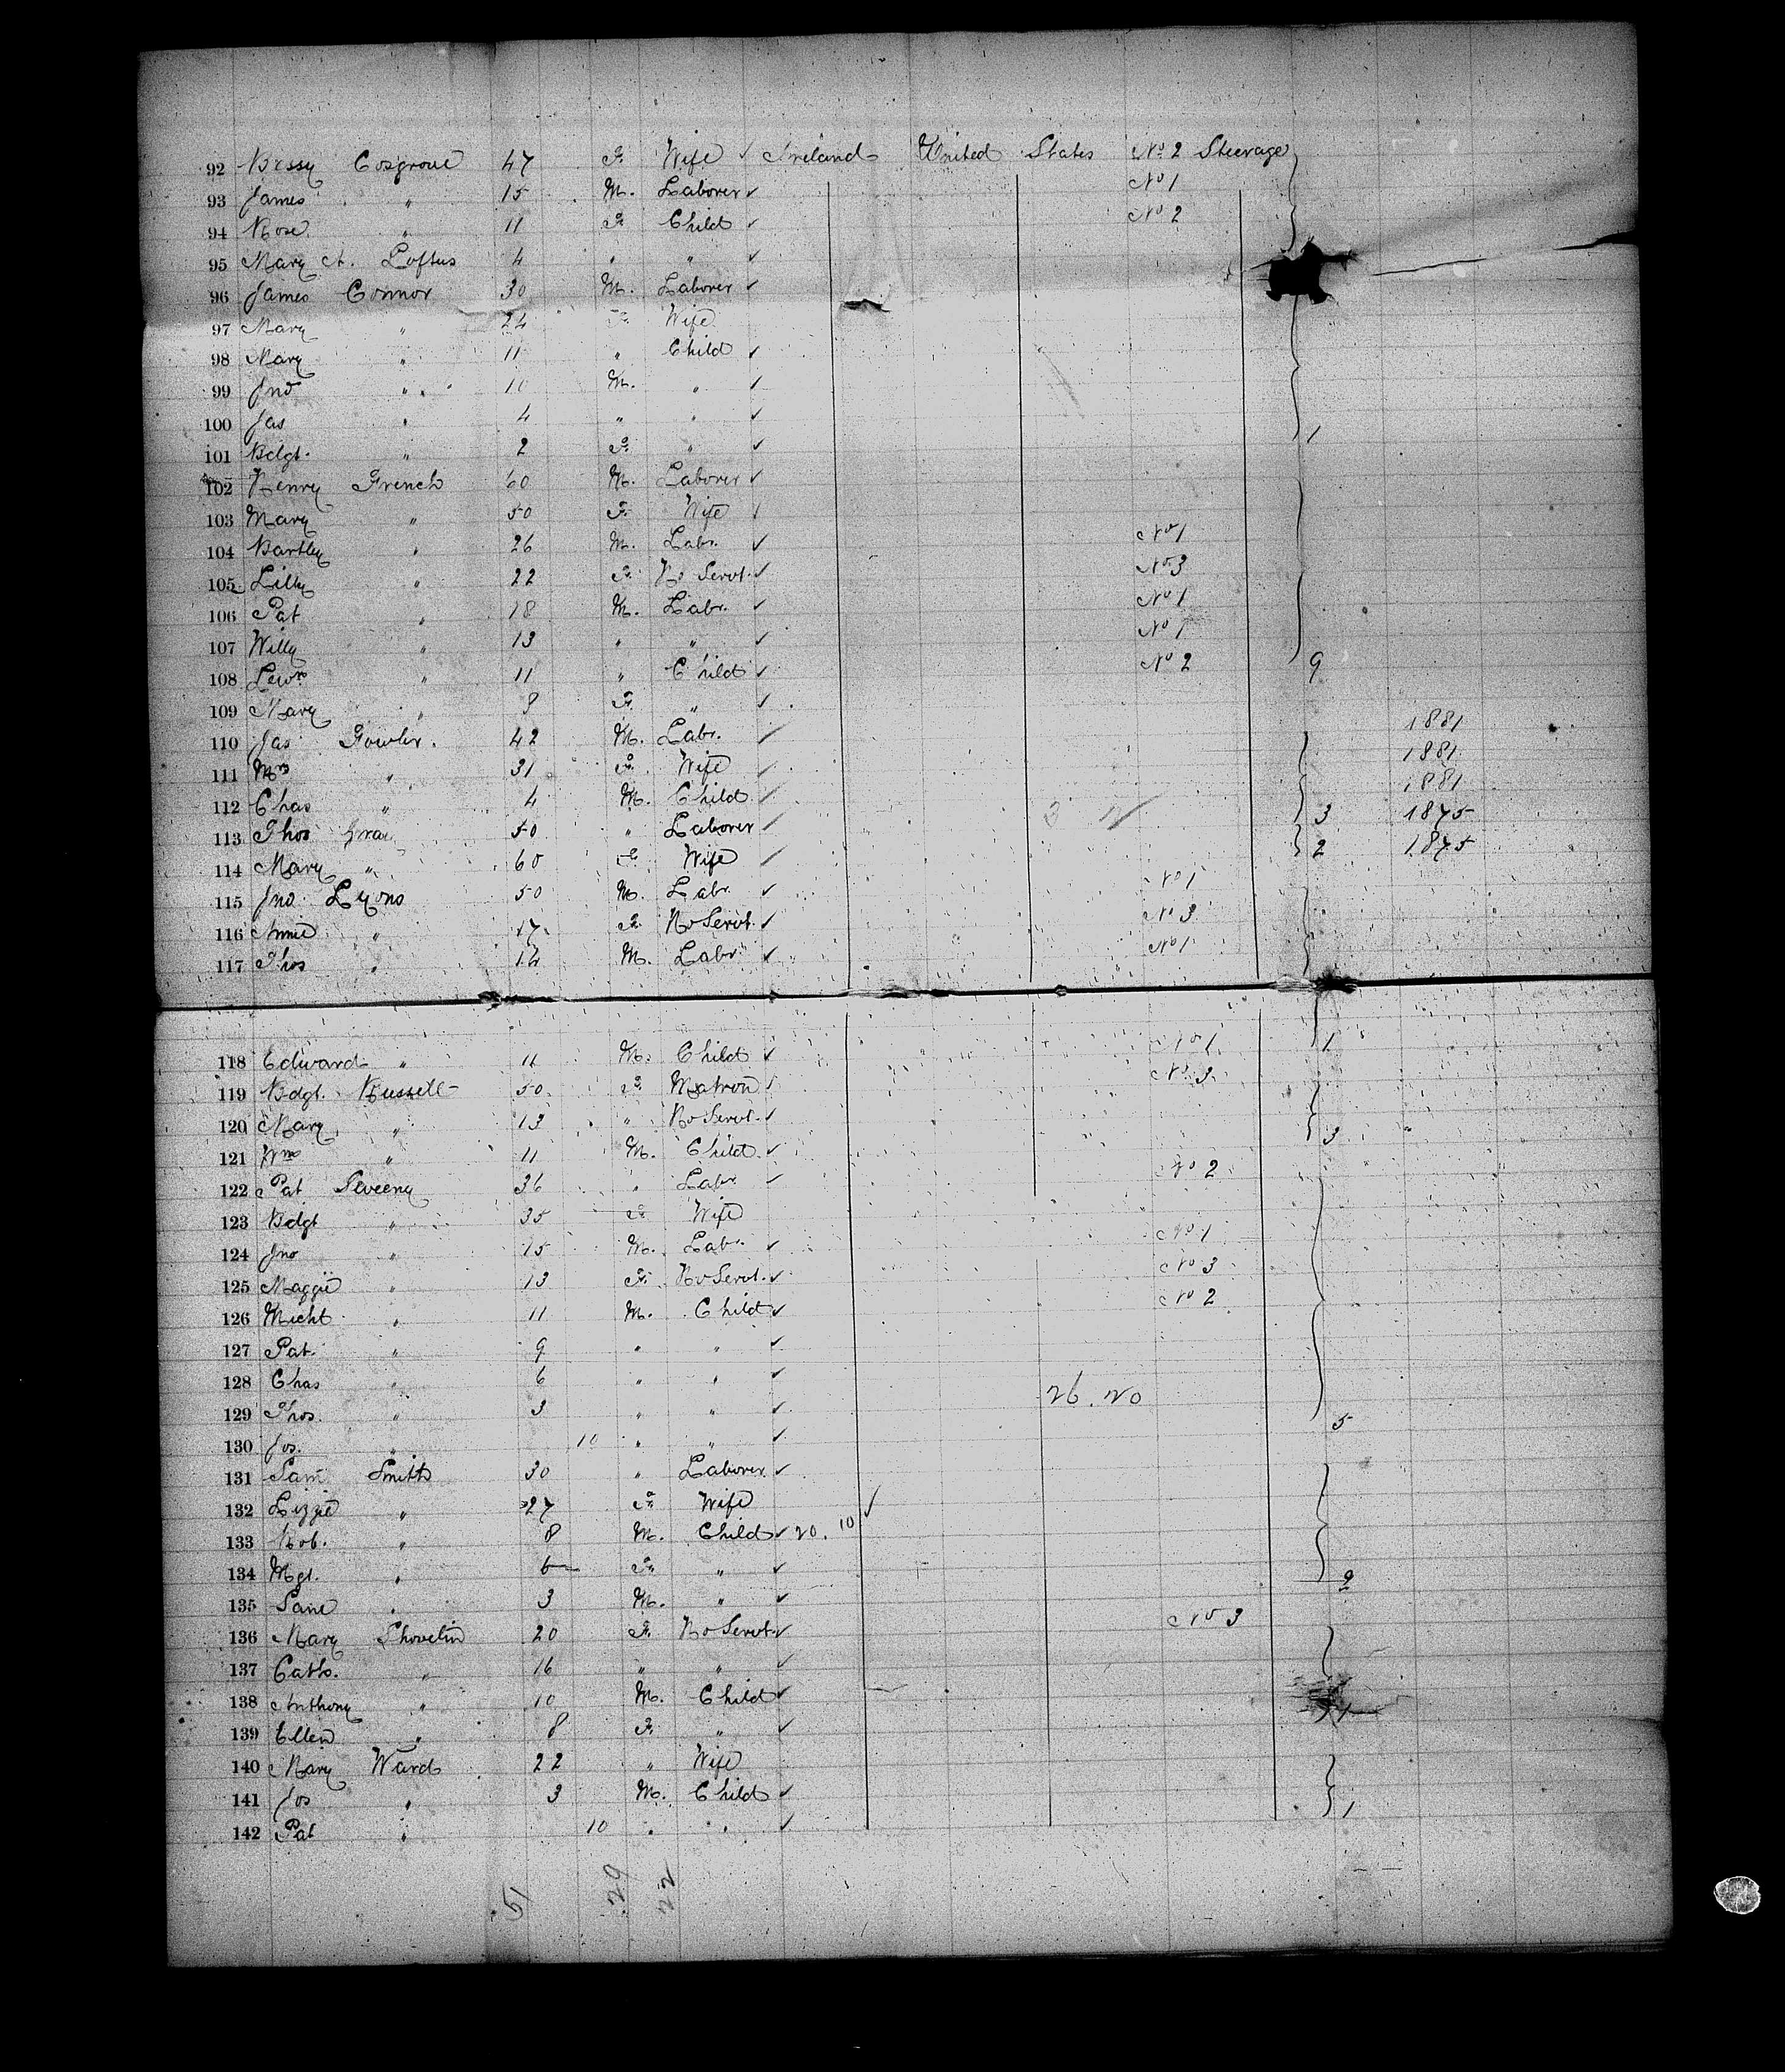 92 Bessy Cosgrove 47 F. Wife ✓ Ireland United States No 2 Steerage
93 James " 15 M. Laborer ✓ No 1
94 Rose " 11 F. Child ✓ No 2
95 Mary A. Loftus 4 " " ✓
96 James Connor 30 M. Laborer ✓
97 Mary " 24 F. Wife
98 Mary " 11 " Child ✓
99 Jno " 10 M. " ✓
100 Jas " 4 " " ✓ 1
101 Bdgt. " 2 F. " ✓
102 Henry French 60 M. Laborer ✓
103 Mary " 50 F. Wife ✓
104 Bartley " 26 M. Labr. ✓ No 1
105 Lilly " 22 F. Ho Servt. ✓ No 3
106 Pat " 18 M. Labr. ✓ No 1
107 Willy " 13 " " ✓ No 1
108 Lewis " 11 " Child ✓ No 2 9
109 Mary " 8 F. " ✓
110 Jas Fowler. 42 M. Labr. ✓ 1881
111 Mrs " 31 F. Wife ✓ 1881
112 Chas " 4 M. Child ✓ 1881
113 Thos Gray 50 " Laborer ✓ 3 1875
114 Mary " 60 F. Wife ✓ 2 1875
115 Jno Lyons 50 M. Labr. ✓ No 1
116 Annie " 17 F. Ho Servt. ✓ No 3
117 Thos " 14 M. Labr. ✓ No 1
118 Edward " 11 M. Child ✓ No 1 1
119 Bdgt. Russell 50 F. Matron ✓ No 3
120 Mary " 13 " Ho Servt. ✓
121 Wm " 11 M. Child ✓ 3
122 Pat Sweeny 36 " Labr. ✓ No 2
123 Bdgt " 35 F. Wife
124 Jno " 15 M. Labr. ✓ No 1
125 Maggie " 13 F. Ho Servt. ✓ No 3
126 Michl " 11 M. Child ✓ No 2
127 Pat. " 9 " " ✓
128 Chas " 6 " " ✓
129 Thos. " 3 " " ✓ 26. 20 5
130 Jos. " 10 " " ✓
131 Sam Smith 30 " Laborer ✓
132 Lizzie " 27 F. Wife ✓
133 Rob. " 8 M. Child ✓ 20. 10
134 Mgt. " 6 F. " ✓
135 " 3 M. " ✓ 2
136 Mary Shovelin 20 F. Ho Servt. ✓ No 3
137 Cath. " 16 " " ✓
138 Anthony " 10 M. Child ✓
139 Ellen " 8 F. " ✓ 1
140 Mary Ward 22 " Wife
141 Jos " 3 M. Child ✓ 1
142 Pat " 10 " " ✓
51 29 22